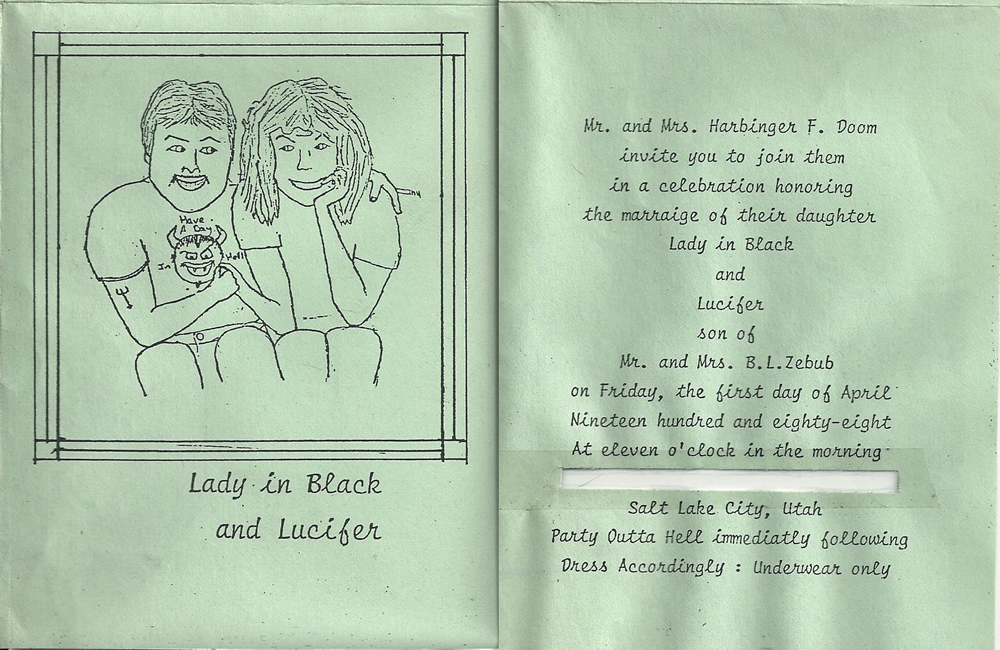 Have
A Day
In
Hell
Lady in Black
and Lucifer
Mr. and Mrs. Harbinger F. Doom
invite you to join them
in a celebration honoring
the marraige of their daughter
Lady in Black
and
Lucifer
son of
Mr. and Mrs. B.L.Zebub
on Friday, the first day of April
Nineteen hundred and eighty-eight
At eleven o'clock in the morning
Salt Lake City, Utah
Party Outta Hell immediatly following
Dress Accordingly : Underwear only